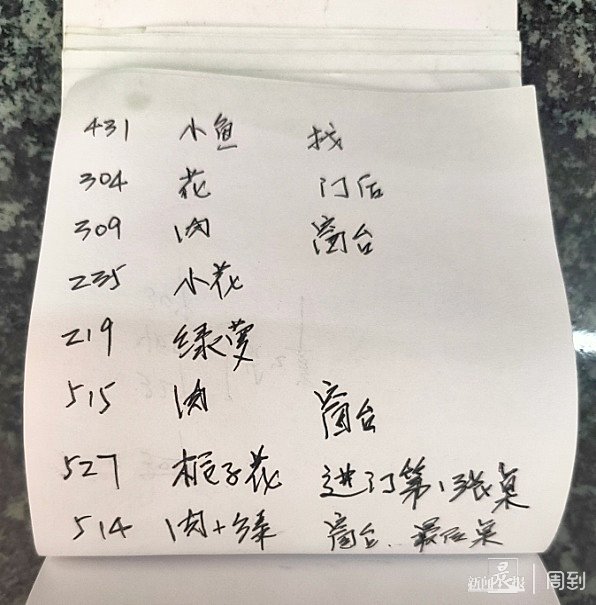 431 小鱼 找
304 花 门后
309 肉 窗台
235 小花
219 绿萝
515 肉 窗台
527 栀子花 进门第1张桌
514 肉+绿 窗台、最后桌
新闻晨报 | 周到